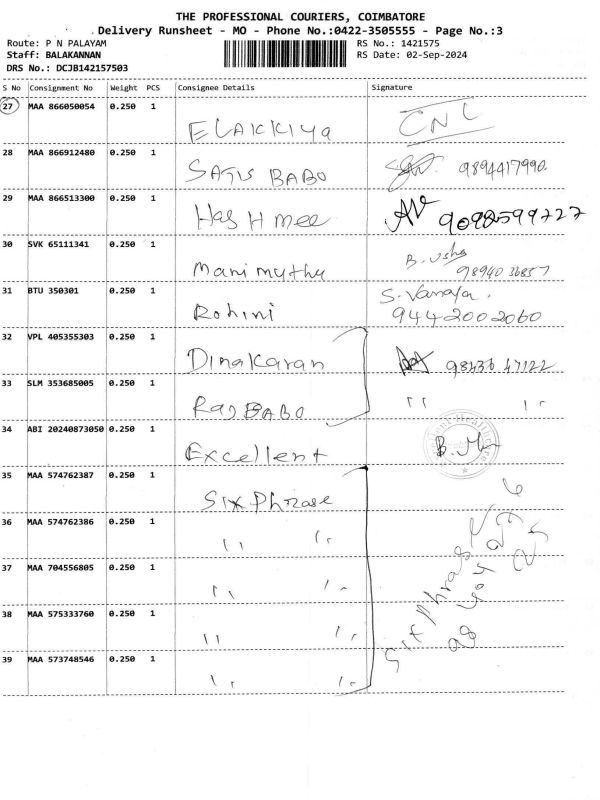 THE PROFESSIONAL COURIERS, COIMBATORE
Delivery Runsheet - MO - Phone No.:0422-3505555 - Page No.:3
Route: P N PALAYAM RS No.: 1421575
Staff: BALAKANNAN RS Date: 02-Sep-2024
DRS No.: DCJB142157503
S No Consignment No Weight PCS Consignee Details Signature
27 MAA 866050054 0.250 1 ELAKKIYA CNC
28 MAA 866912480 0.250 1 SATIS BABO 9894417990
29 MAA 866513300 0.250 1 HasHmee 9098599727
30 SVK 65111341 0.250 1 Manimuthu B. Usha
9894036857
31 BTU 350301 0.250 1 Rohini S. Vanaja.
9442002060
32 VPL 405355303 0.250 1 Dinakaran 98436 47122
33 SLM 353685005 0.250 1 Raj BABO " "
34 ABI 20240873050 0.250 1 Excellent
35 MAA 574762387 0.250 1 Six Phrase
36 MAA 574762386 0.250 1 " "
37 MAA 704556805 0.250 1 " "
38 MAA 575333760 0.250 1 " "
39 MAA 573748546 0.250 1 " "
Six Phrase